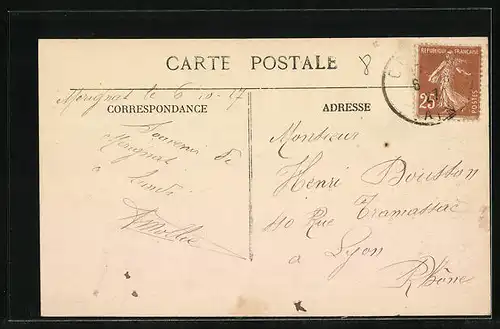 CARTE POSTALE
8
REPUBLIQUE FRANÇAISE
25
POSTES
Merignat le 6 10 27
CORRESPONDANCE
ADRESSE
Souvenir de
Merignat
à
Monsieur
Henri Dousson
40 Rue Tramassac
à Lyon
Rhône